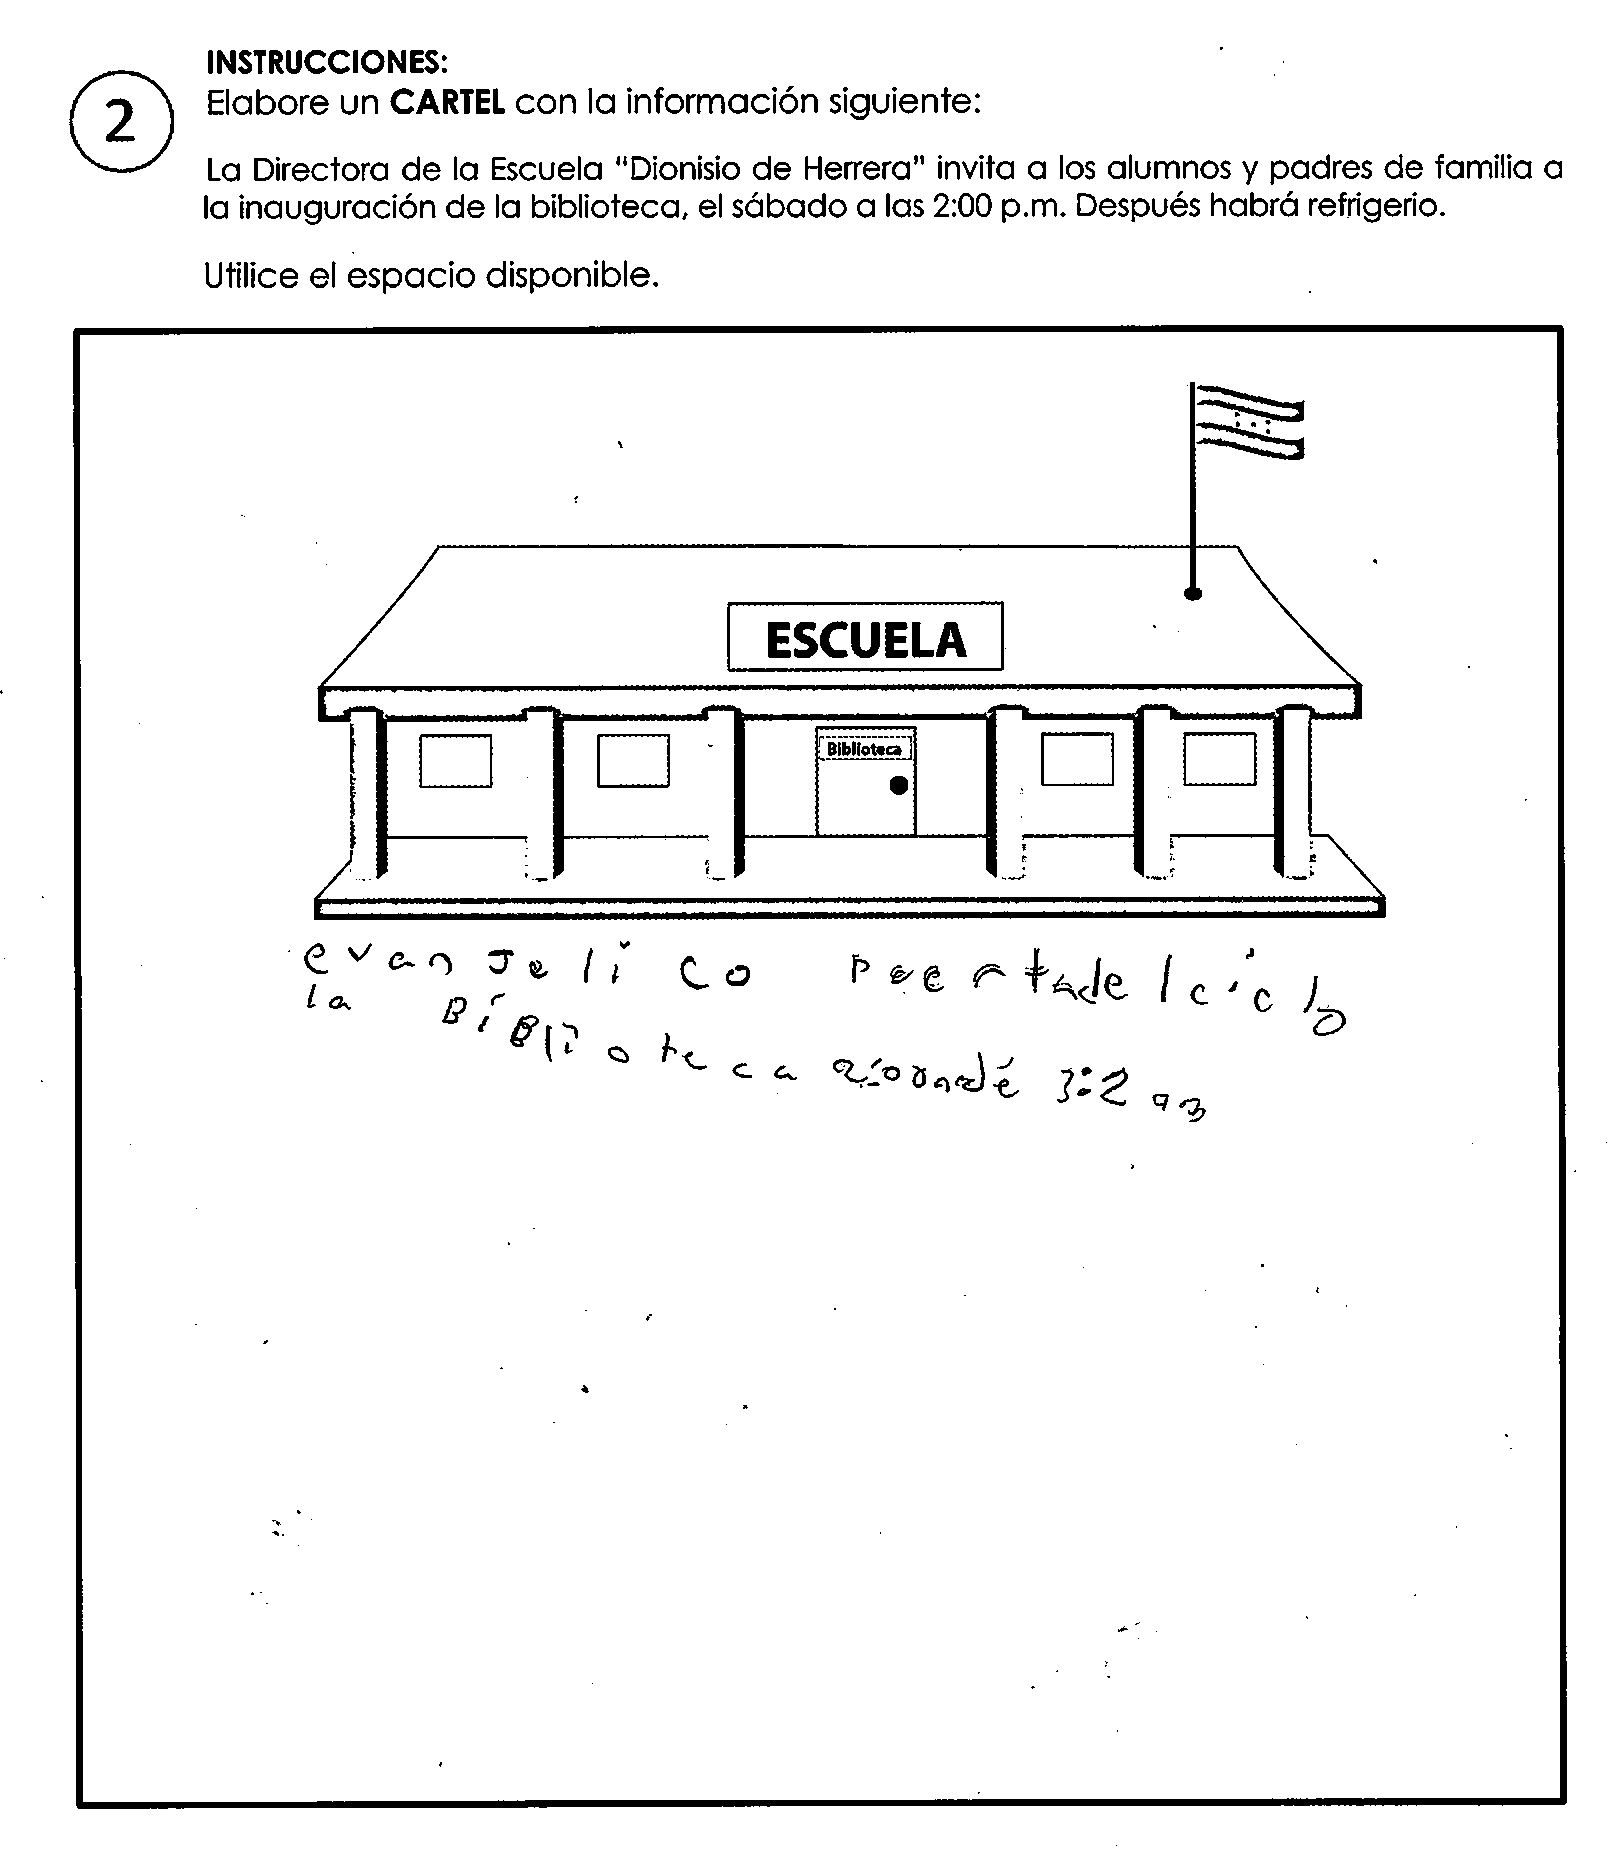 INSTRUCCIONES:
2
Elabore un CARTEL con la información siguiente:
La Directora de la Escuela "Dionisio de Herrera" invita a los alumnos y padres de familia a
la inauguración de la biblioteca, el sábado a las 2:00 p.m. Después habrá refrigerio.
Utilice el espacio disponible.
ESCUELA
Biblioteca
evanJelico
la BiBlioteca 3:2